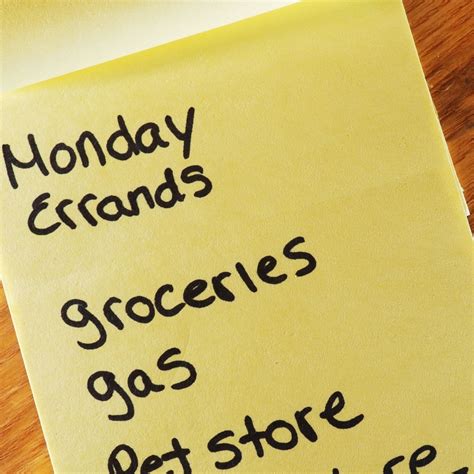 Monday
Errands
groceries
gas
Pet store